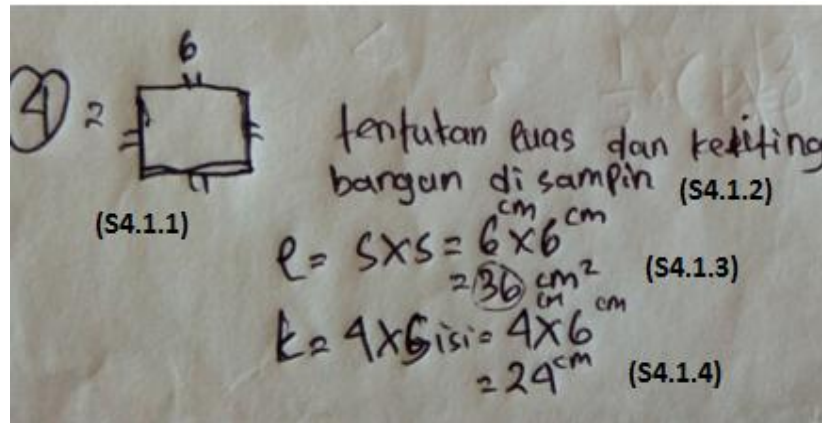 6
4 =
(S4.1.1)
tentukan luas dan keliling
bangun di sampin (S4.1.2)
l = s x s = 6 cm x 6 cm
= 36 cm² (S4.1.3)
k = 4 x Sisi = 4 cm x 6 cm
= 24 cm (S4.1.4)